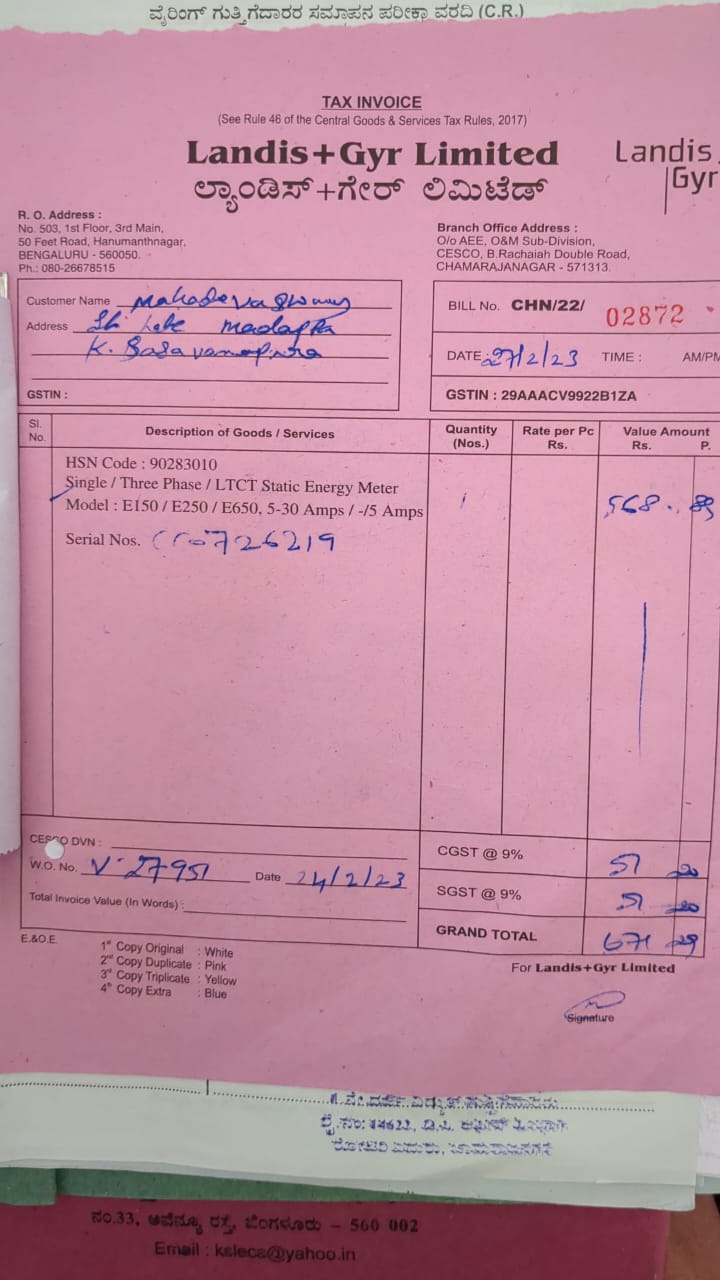 ವೈರಿಂಗ್ ಗುತ್ತಿಗೆದಾರರ ಸಮಾಪನ ಪರೀಕ್ಷಾ ವರದಿ (C.R.)
TAX INVOICE
(See Rule 46 of the Central Goods & Services Tax Rules, 2017)
Landis+Gyr Limited
ಲ್ಯಾಂಡಿಸ್+ಗೇರ್ ಲಿಮಿಟೆಡ್
Landis
Gyr
R. O. Address :
No. 503, 1st Floor, 3rd Main,
50 Feet Road, Hanumanthnagar,
BENGALURU - 560050.
Ph.: 080-26678515
Branch Office Address :
O/o AEE, O&M Sub-Division,
CESCO, B.Rachaiah Double Road,
CHAMARAJANAGAR - 571313.
Customer Name Mahadevaswamy
Address S/o Late Madappa
K. Basavanapura
GSTIN :
BILL No. CHN/22/ 02872
DATE : 27/2/23 TIME : AM/PM
GSTIN : 29AAACV9922B1ZA
Sl. No. Description of Goods / Services Quantity (Nos.) Rate per Pc Rs. Value Amount Rs. P.
HSN Code : 90283010
Single / Three Phase / LTCT Static Energy Meter
Model : E150 / E250 / E650, 5-30 Amps / -/5 Amps 1 568 . 89
Serial Nos. 726219
CESCO DVN :
W.O. No. V 27951 Date 24/2/23
Total Invoice Value (In Words) :
CGST @ 9% 51 20
SGST @ 9% 51 20
GRAND TOTAL 671 29
E.&O.E.
1st Copy Original : White
2nd Copy Duplicate : Pink
3rd Copy Triplicate : Yellow
4th Copy Extra : Blue
For Landis+Gyr Limited
Signature
ನಂ.33, ಅವೆನ್ಯೂ ರಸ್ತೆ, ಬೆಂಗಳೂರು – 560 002
Email : ksleca@yahoo.in